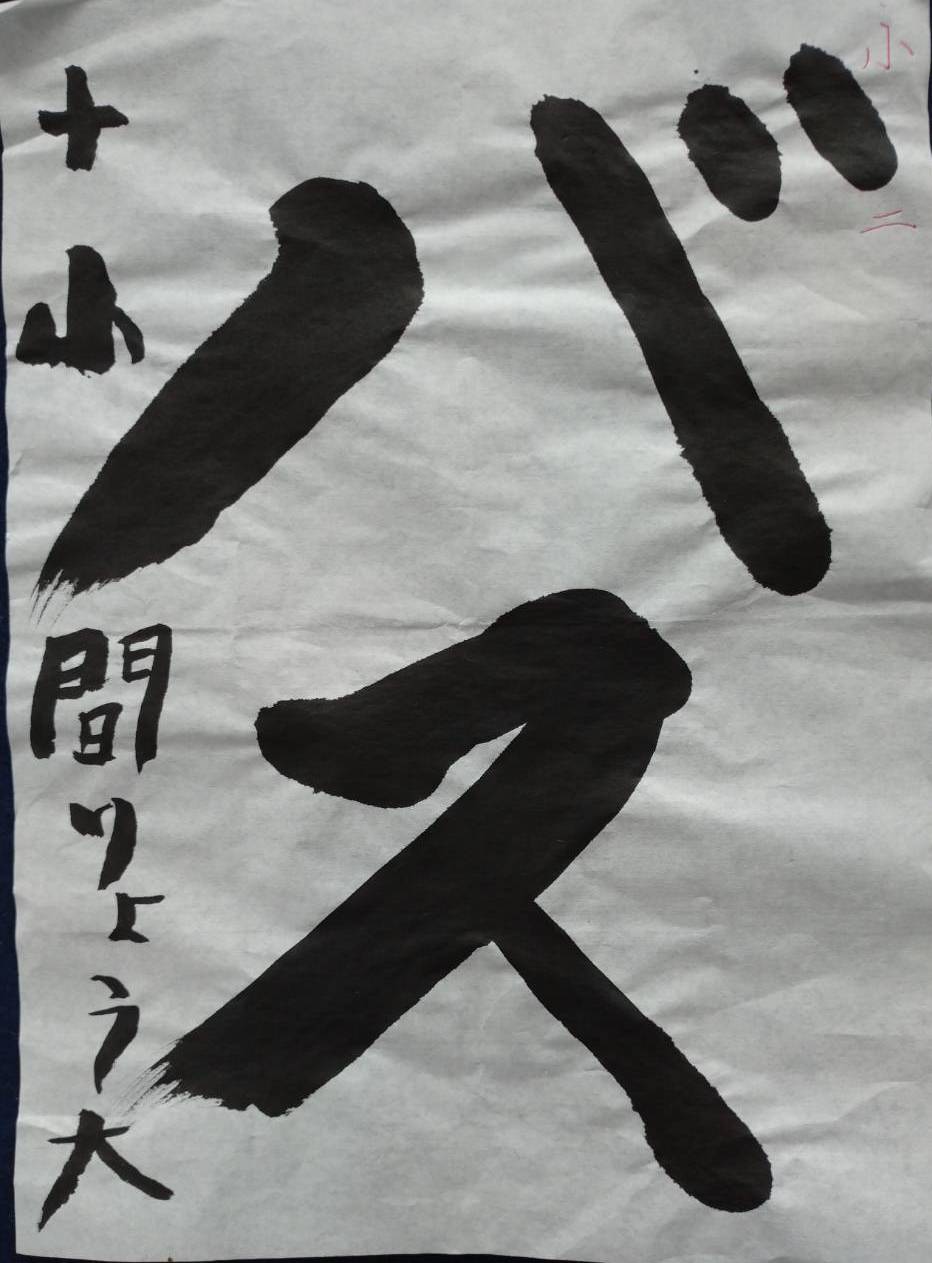 小二
バス
十山間りょう大